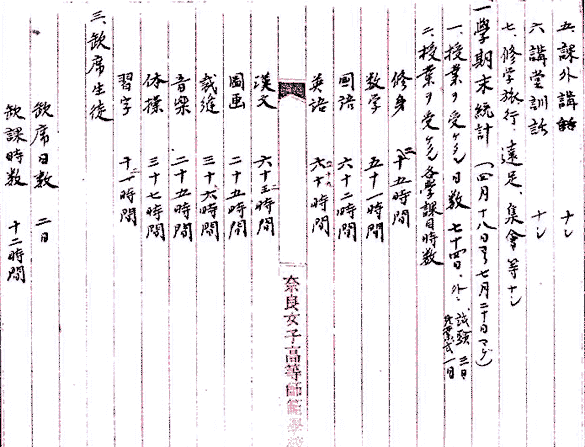 五、課外講話 ナシ
六、講堂訓話 ナシ
七、修学旅行、遠足、集會等ナシ
一學期末統計（四月十八日ヨリ七月二十日マデ）
一、授業ヲ受ケシ日数 七十四日、外ニ 試験 三日
一日
二、授業ヲ受ケシ各學課目時数
修身 二十五時間
数学 五十一時間
國語 六十二時間
英語 時間
奈良女子高等師範學校
漢文 六十三時間
圖画 二十五時間
裁縫 三十六時間
音樂 二十五時間
体操 三十七時間
習字 十一時間
三、欽席生徒
欽席日数 二日
欽課時数 十二時間